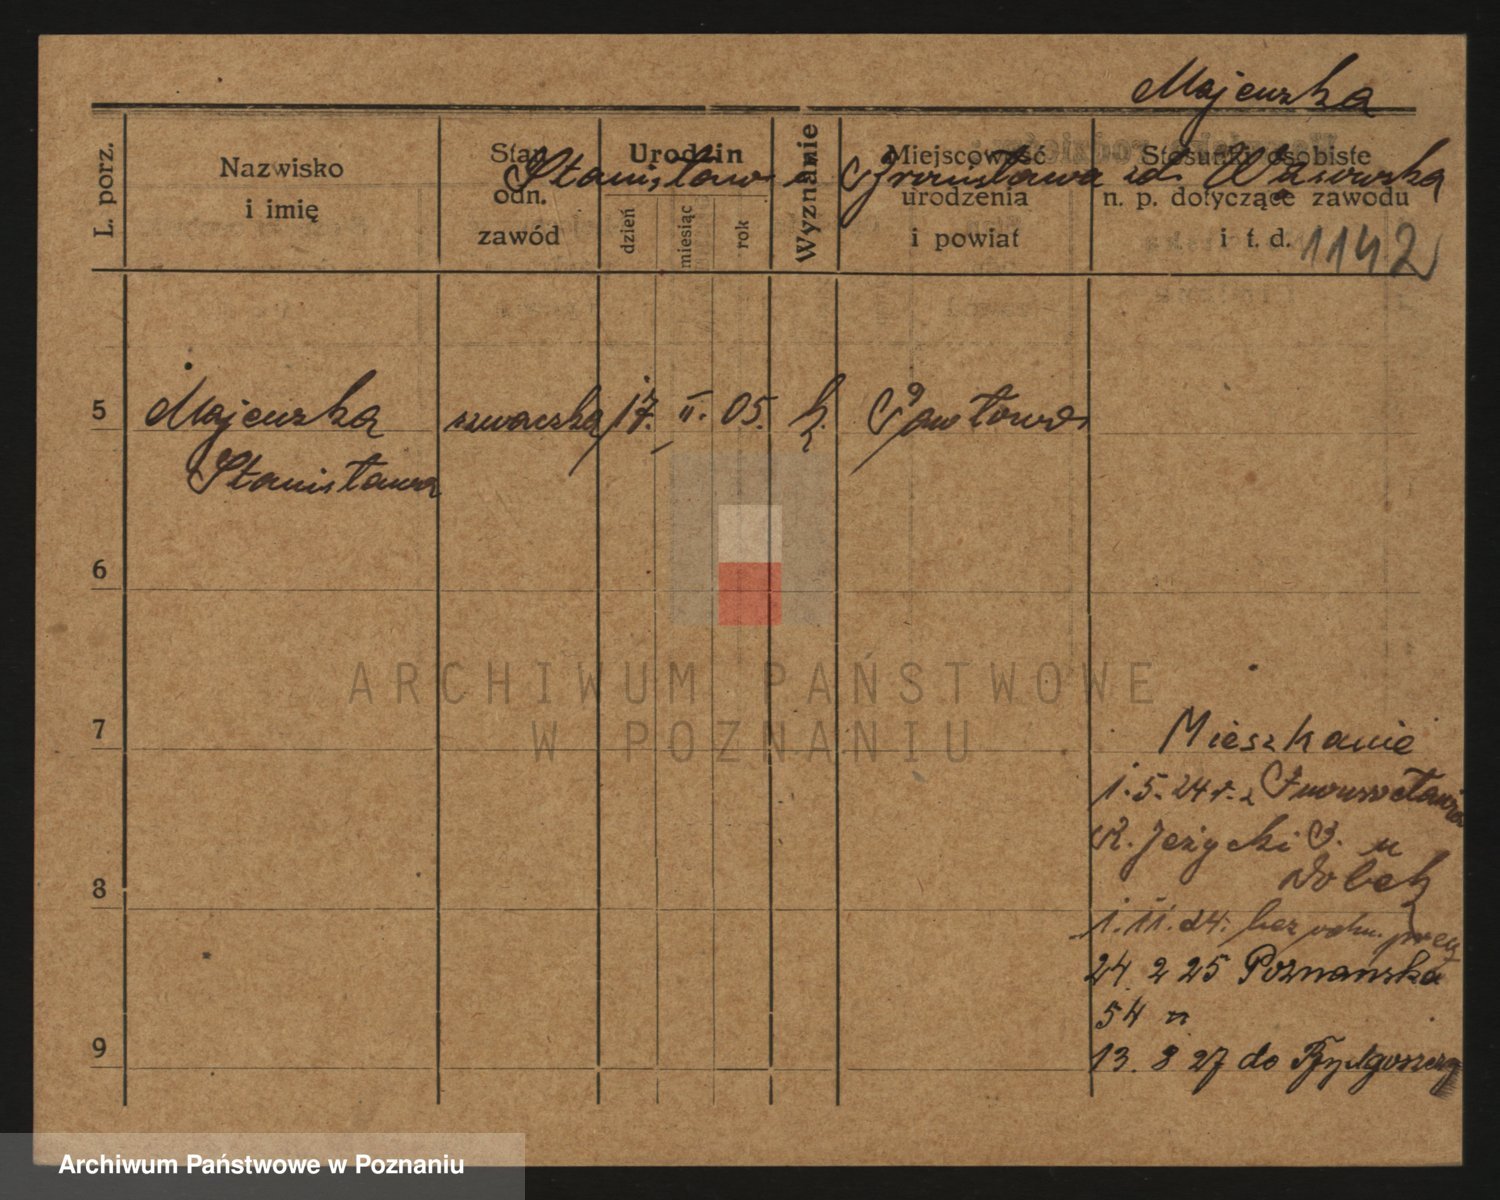 Majewska
Stanisław i Bronisława zd. Wąsowska
1142
L. porz.
Nazwisko
i imię
Stan
odn.
zawód
Urodzin
dzień
miesiąc
rok
Wyznanie
Miejscowość
urodzenia
i powiat
Stosunki osobiste
n. p. dotyczące zawodu
i t. d.
5
Majewska szwaczka 17. II. 05. k. Pawłowo
Stanisława
6
7
Mieszkanie
1. 5. 24 r. z Inowrocławia
R. Jeżycki 3. u
8
1. 11. 24. bez odm. prey
24 2 25 Poznańska
54 n
9
13. 8 27 do Bydgoszczy
ARCHIWUM PAŃSTWOWE
W POZNANIU
Archiwum Państwowe w Poznaniu